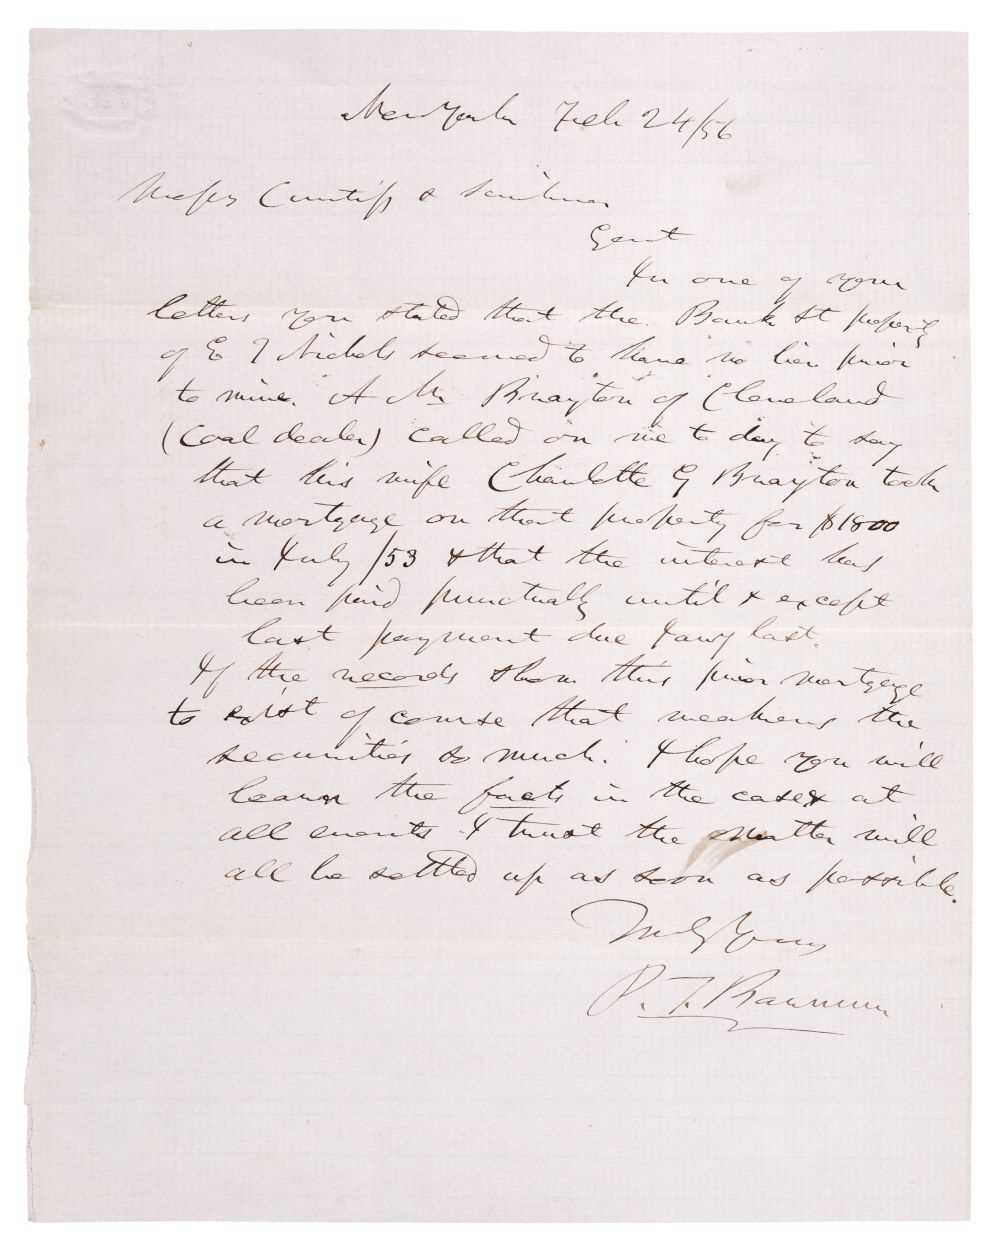 New York Feb 24/56
Messrs Curtiss &
Gent
In one of your
letters you stated that the Bank St property
of E T Nichols seemed to have no lien prior
to mine. A Mr Brayton of Cleveland
(coal dealer) called on me to day to say
that his wife Charlotte G Brayton took
a mortgage on that property for $1800
in July /53 & that the interest has
been paid punctually until & except
last payment due Jany last.
If the records show this prior mortgage
to exist of course that weakens the
securities so much. I hope you will
learn the facts in the case & at
all events I trust the matter will
all be settled up as soon as possible.
Truly Yours
P. T. Barnum